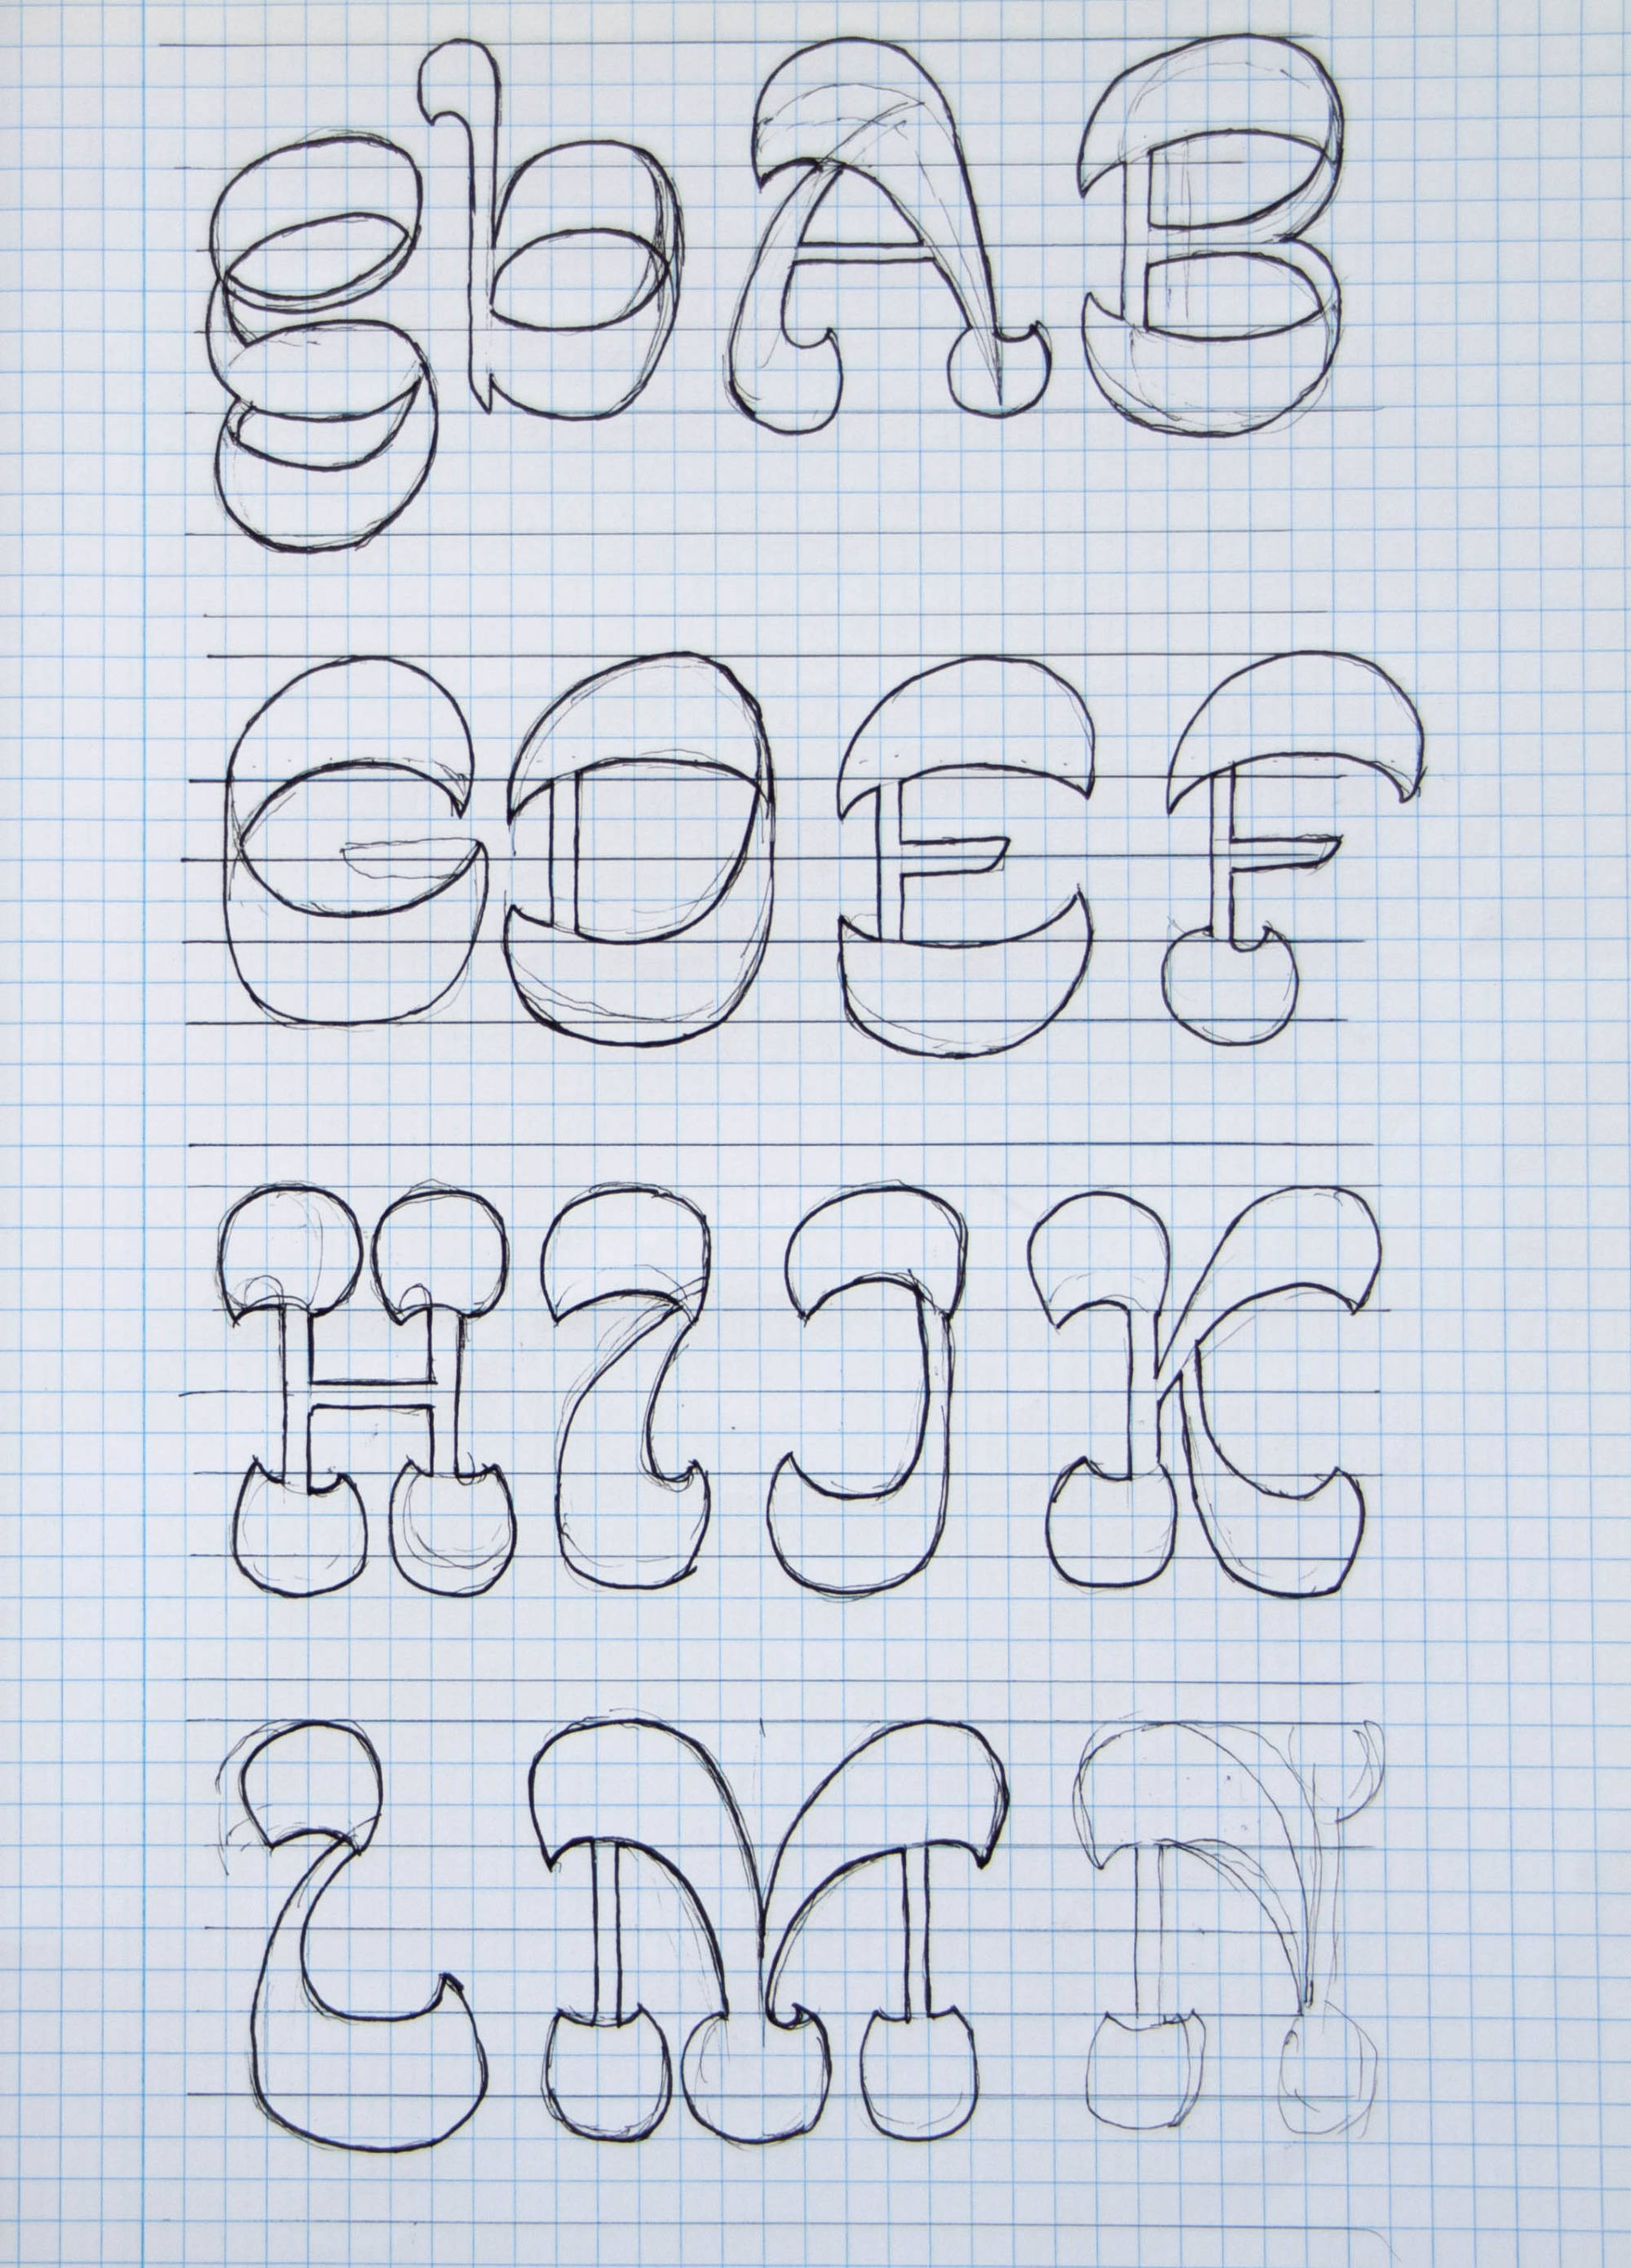 g b A B
C D E F
H I J K
L M N